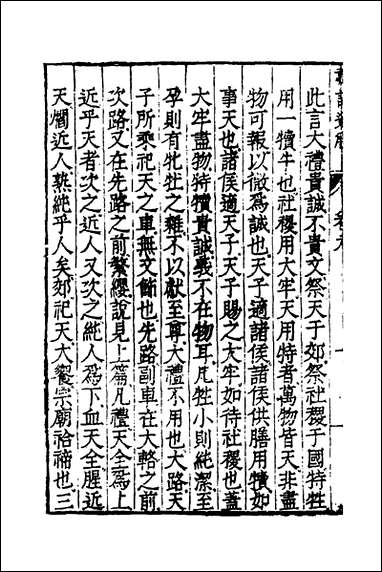 此言大禮貴誠不貴文祭天子郊祭社稷于國特牲
用一犢牛也社稷用大牢天用特者萬物皆天非盡
物可報以微爲誠也天子適諸侯諸侯供膳用犢如
事天也諸侯適天子天子賜之大牢如待社稷也蓋
大牢盡物特犢貴誠義不在物耳凡牲小則純潔至
孕則有牝牡之雜不以獻至尊大禮不用也大路天
子所乘祀天之車無文飾也先路副車在大輅之前
次路又在先路之前繁纓說見上篇凡禮天全爲上
近乎天者次之近人又次之純人爲下血天全腥近
天爓近人熟純乎人矣郊祀天大饗宗廟祫禘也三